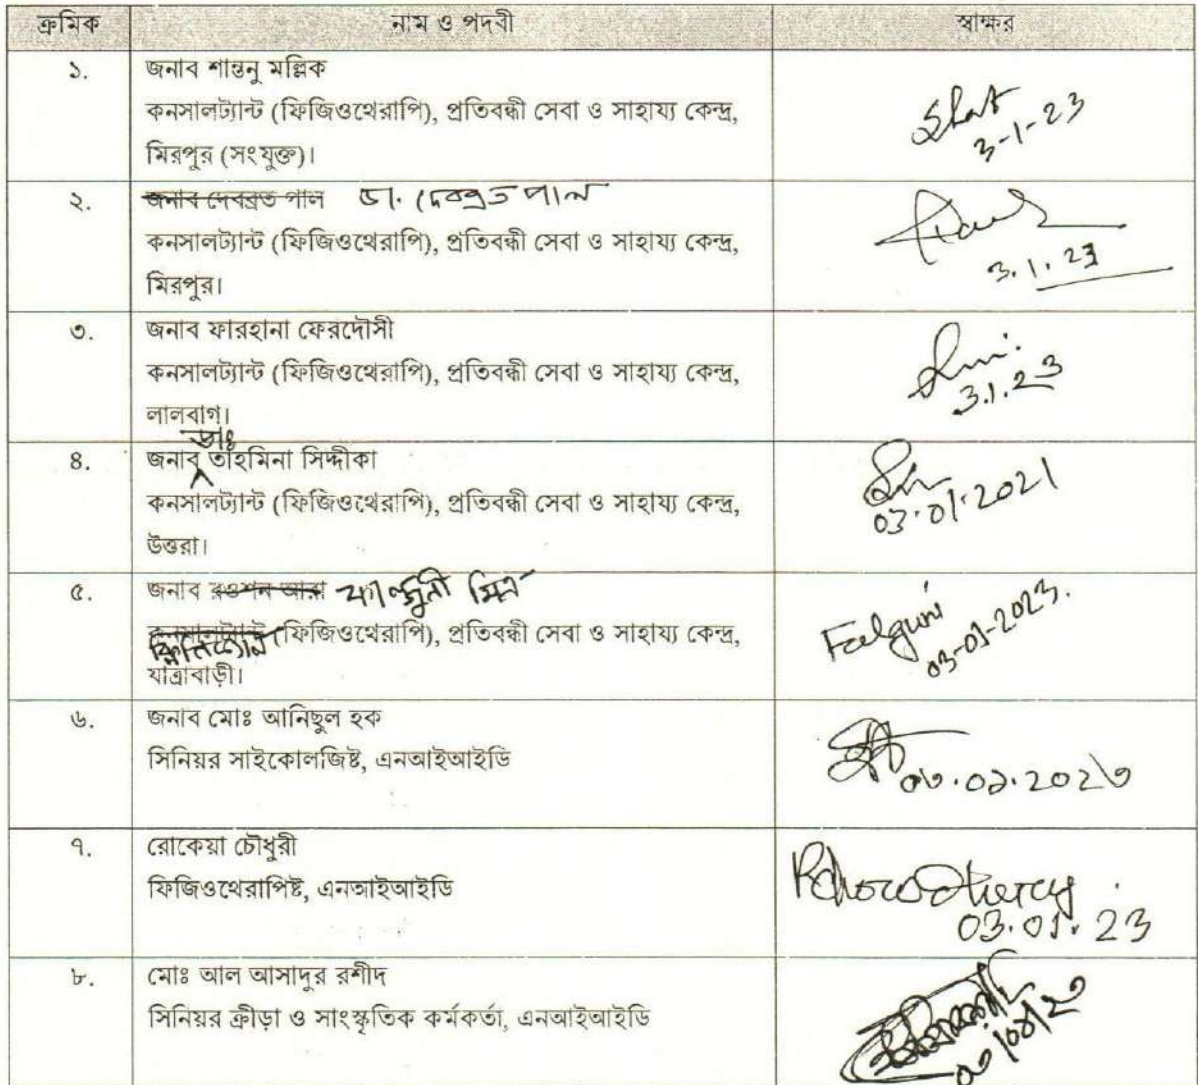 ক্রমিক নাম ও পদবী স্বাক্ষর
১. জনাব শান্তনু মল্লিক
কনসালট্যান্ট (ফিজিওথেরাপি), প্রতিবন্ধী সেবা ও সাহায্য কেন্দ্র,
মিরপুর (সংযুক্ত)।
3-1-23
২. জনাব দেবব্রত পাল ডা. দেবব্রত পাল
কনসালট্যান্ট (ফিজিওথেরাপি), প্রতিবন্ধী সেবা ও সাহায্য কেন্দ্র,
মিরপুর।
3.1.23
৩. জনাব ফারহানা ফেরদৌসী
কনসালট্যান্ট (ফিজিওথেরাপি), প্রতিবন্ধী সেবা ও সাহায্য কেন্দ্র,
লালবাগ।
3.1.23
ডাঃ
৪. জনাব তাহমিনা সিদ্দীকা
কনসালট্যান্ট (ফিজিওথেরাপি), প্রতিবন্ধী সেবা ও সাহায্য কেন্দ্র,
উত্তরা।
03.01.2021
৫. জনাব রওশন আরা ফাল্গুনী মিত্র
কনসালট্যান্ট (ফিজিওথেরাপি), প্রতিবন্ধী সেবা ও সাহায্য কেন্দ্র,
যাত্রাবাড়ী।
Falguni
03-01-2023.
৬. জনাব মোঃ আনিছুল হক
সিনিয়র সাইকোলজিষ্ট, এনআইআইডি
০৩.০১.২০২৩
৭. রোকেয়া চৌধুরী
ফিজিওথেরাপিষ্ট, এনআইআইডি
03.01.23
৮. মোঃ আল আসাদুর রশীদ
সিনিয়র ক্রীড়া ও সাংস্কৃতিক কর্মকর্তা, এনআইআইডি